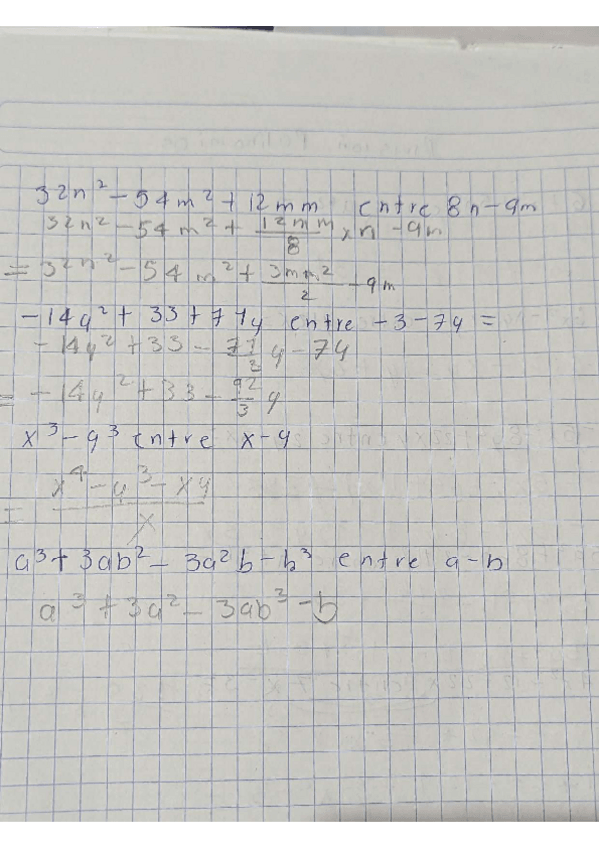 32n² - 54m² + 12mm entre 8n - 9m
32n² - 54m² + 12mm/8 x n - 9m
= 32n² - 54m² + 3mn²/2 - 9m
-14y² + 33 + 71y entre -3 - 7y =
-14y² + 33 - 71/3 y - 7y
= -14y² + 33 - 92/3 y
x³ - y³ entre x - y
= x⁴ - y³ - xy / x
a³ + 3ab² - 3a²b - b³ entre a - b
a³ + 3a² - 3ab³ - b